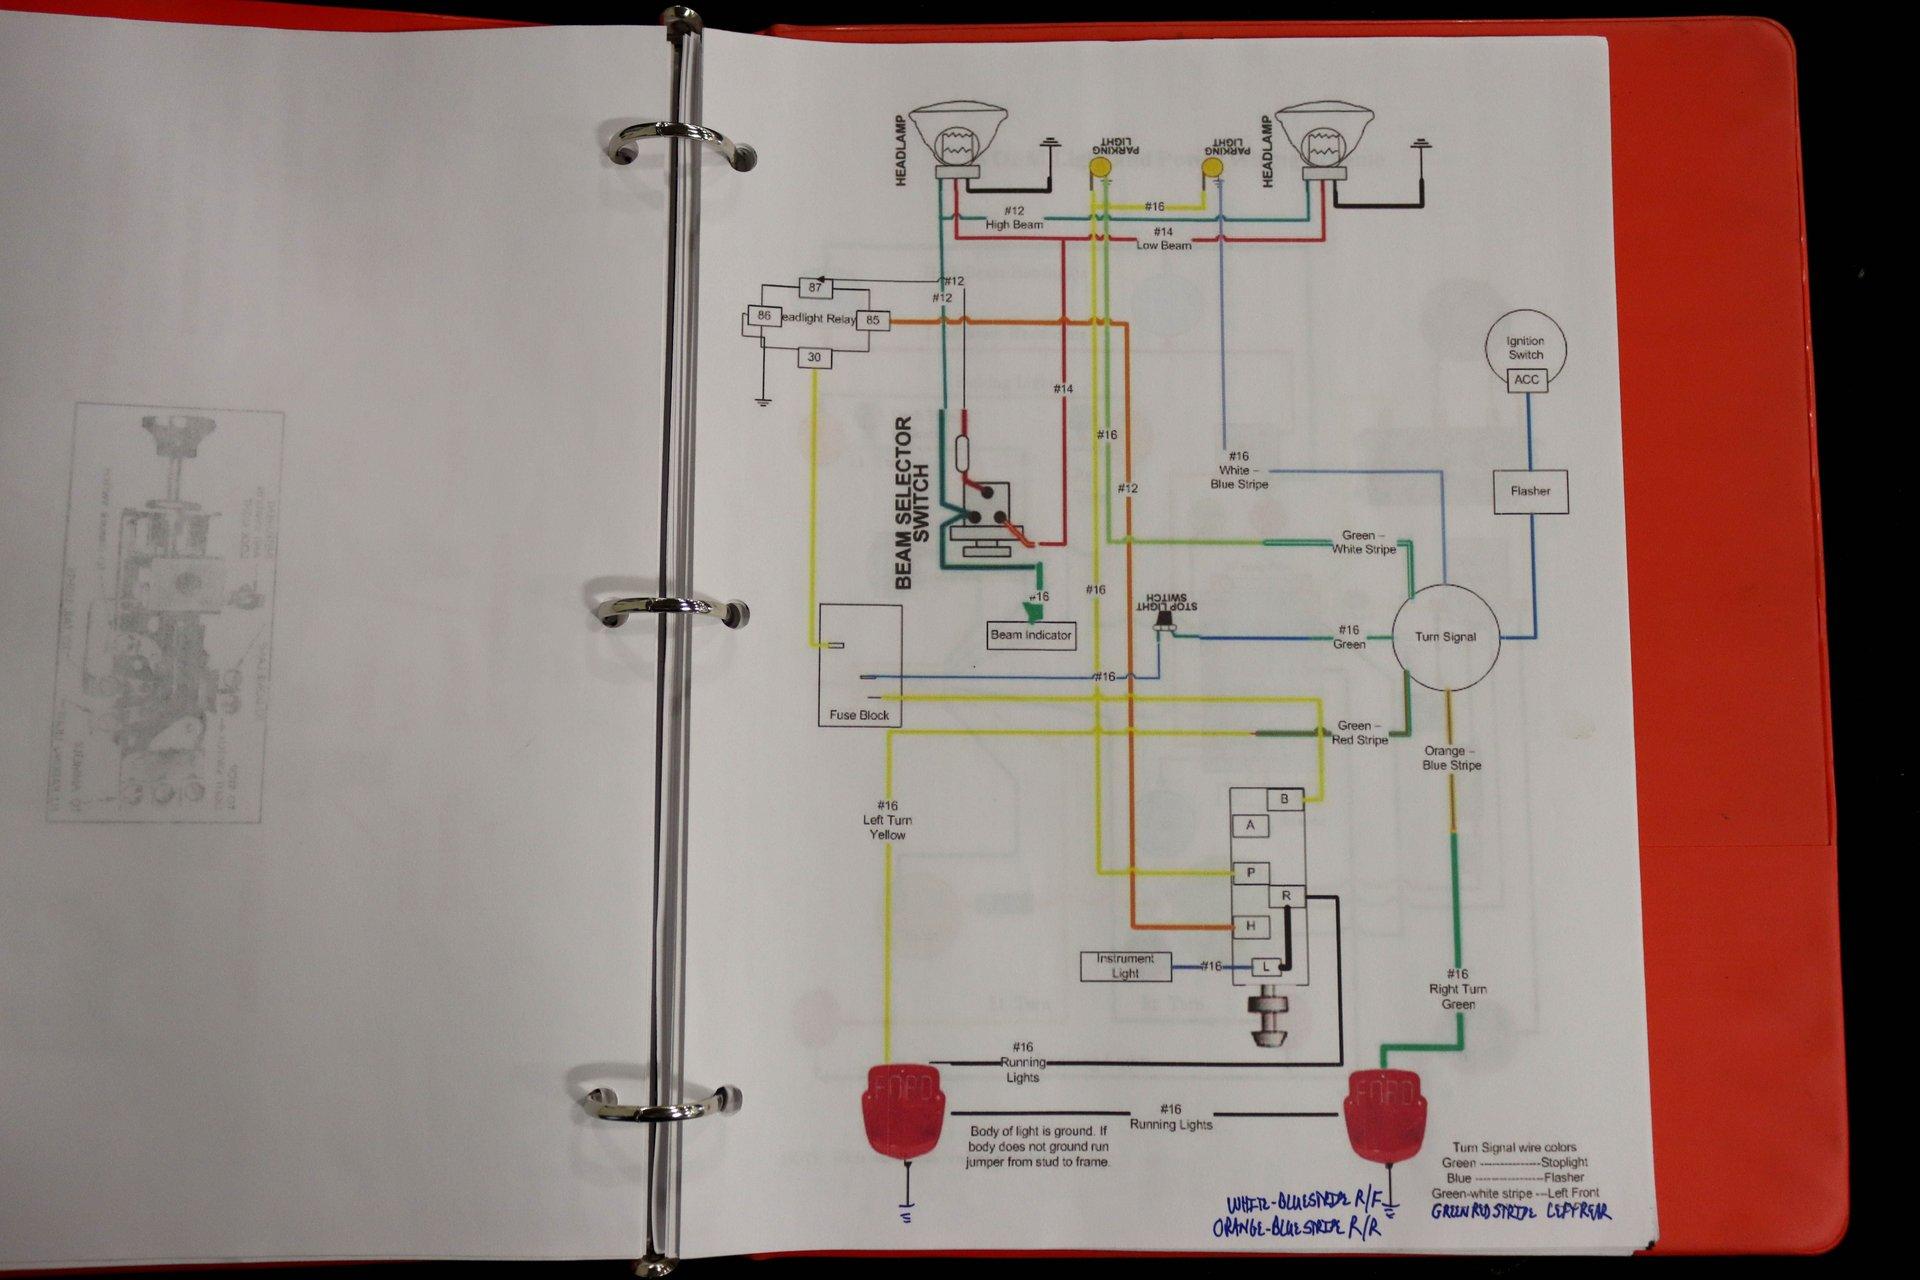 HEADLAMP
PARKING
LIGHT
PARKING
LIGHT
HEADLAMP
#12
High Beam
#16
#14
Low Beam
87
#12
#12
86
eadlight Relay
85
30
Ignition
Switch
ACC
#14
#16
#16
White –
Blue Stripe
#12
Flasher
BEAM SELECTOR
SWITCH
Green –
White Stripe
#16
#16
Beam Indicator
STOP LIGHT
SWITCH
#16
Green
Turn Signal
#16
Fuse Block
Green –
Red Stripe
Orange –
Blue Stripe
#16
Left Turn
Yellow
B
A
P
R
H
L
Instrument
Light
#16
#16
Right Turn
Green
#16
Running
Lights
FORD
FORD
#16
Running Lights
Body of light is ground. If
body does not ground run
jumper from stud to frame.
Turn Signal wire colors
Green --------------Stoplight
Blue ---------------Flasher
Green-white stripe ---Left Front
GREEN RED STRIPE LEFT REAR
WHITE-BLUE STRIPE R/F
ORANGE-BLUE STRIPE R/R